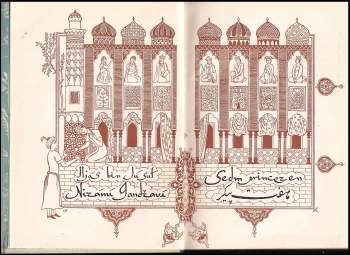 Iljás bin Júsuf
Nizámí Gandžaví
Sedm princezen
هفت پیکر